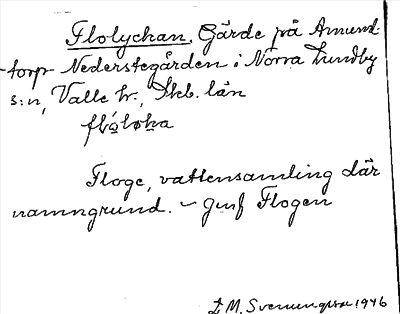 Flolyckan. Gärde på Amund-
torp Nederstegården i Norra Lundby
s:n, Valle hr., Skb. län
flo̲lo̲ka
Floge, vattensamling där
namngrund. – Jmf Flogen
M. Svenungsson 1946